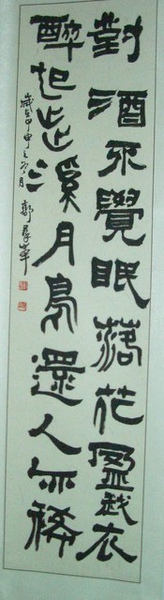 對酒不覺眠落花盈我衣
醉起步溪月鳥還人亦稀
歲在甲申之六月 郭